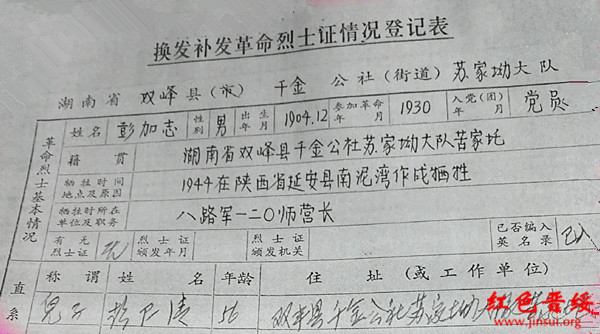 换发补发革命烈士证情况登记表
湖南省 双峰县（市） 千金 公社（街道） 苏家坳大队
革命烈士基本情况
姓名 彭加志 性别 男 出生年月 1904.12 参加革命年月 1930 入党（团）年月 党员
籍贯 湖南省双峰县千金公社苏家坳大队苦家坨
牺牲时间地点及原因 1944在陕西省延安县南泥湾作战牺牲
牺牲时所在单位及职务 八路军一二〇师营长
有无烈士证 无 烈士证颁发年月 烈士证颁发机关 已否编入英名录 已入
直系
称谓 姓名 年龄 住址（或工作单位）
儿子 56 双峰县千金公社苏家坳大队
红色晋绥
www.jinsui.org